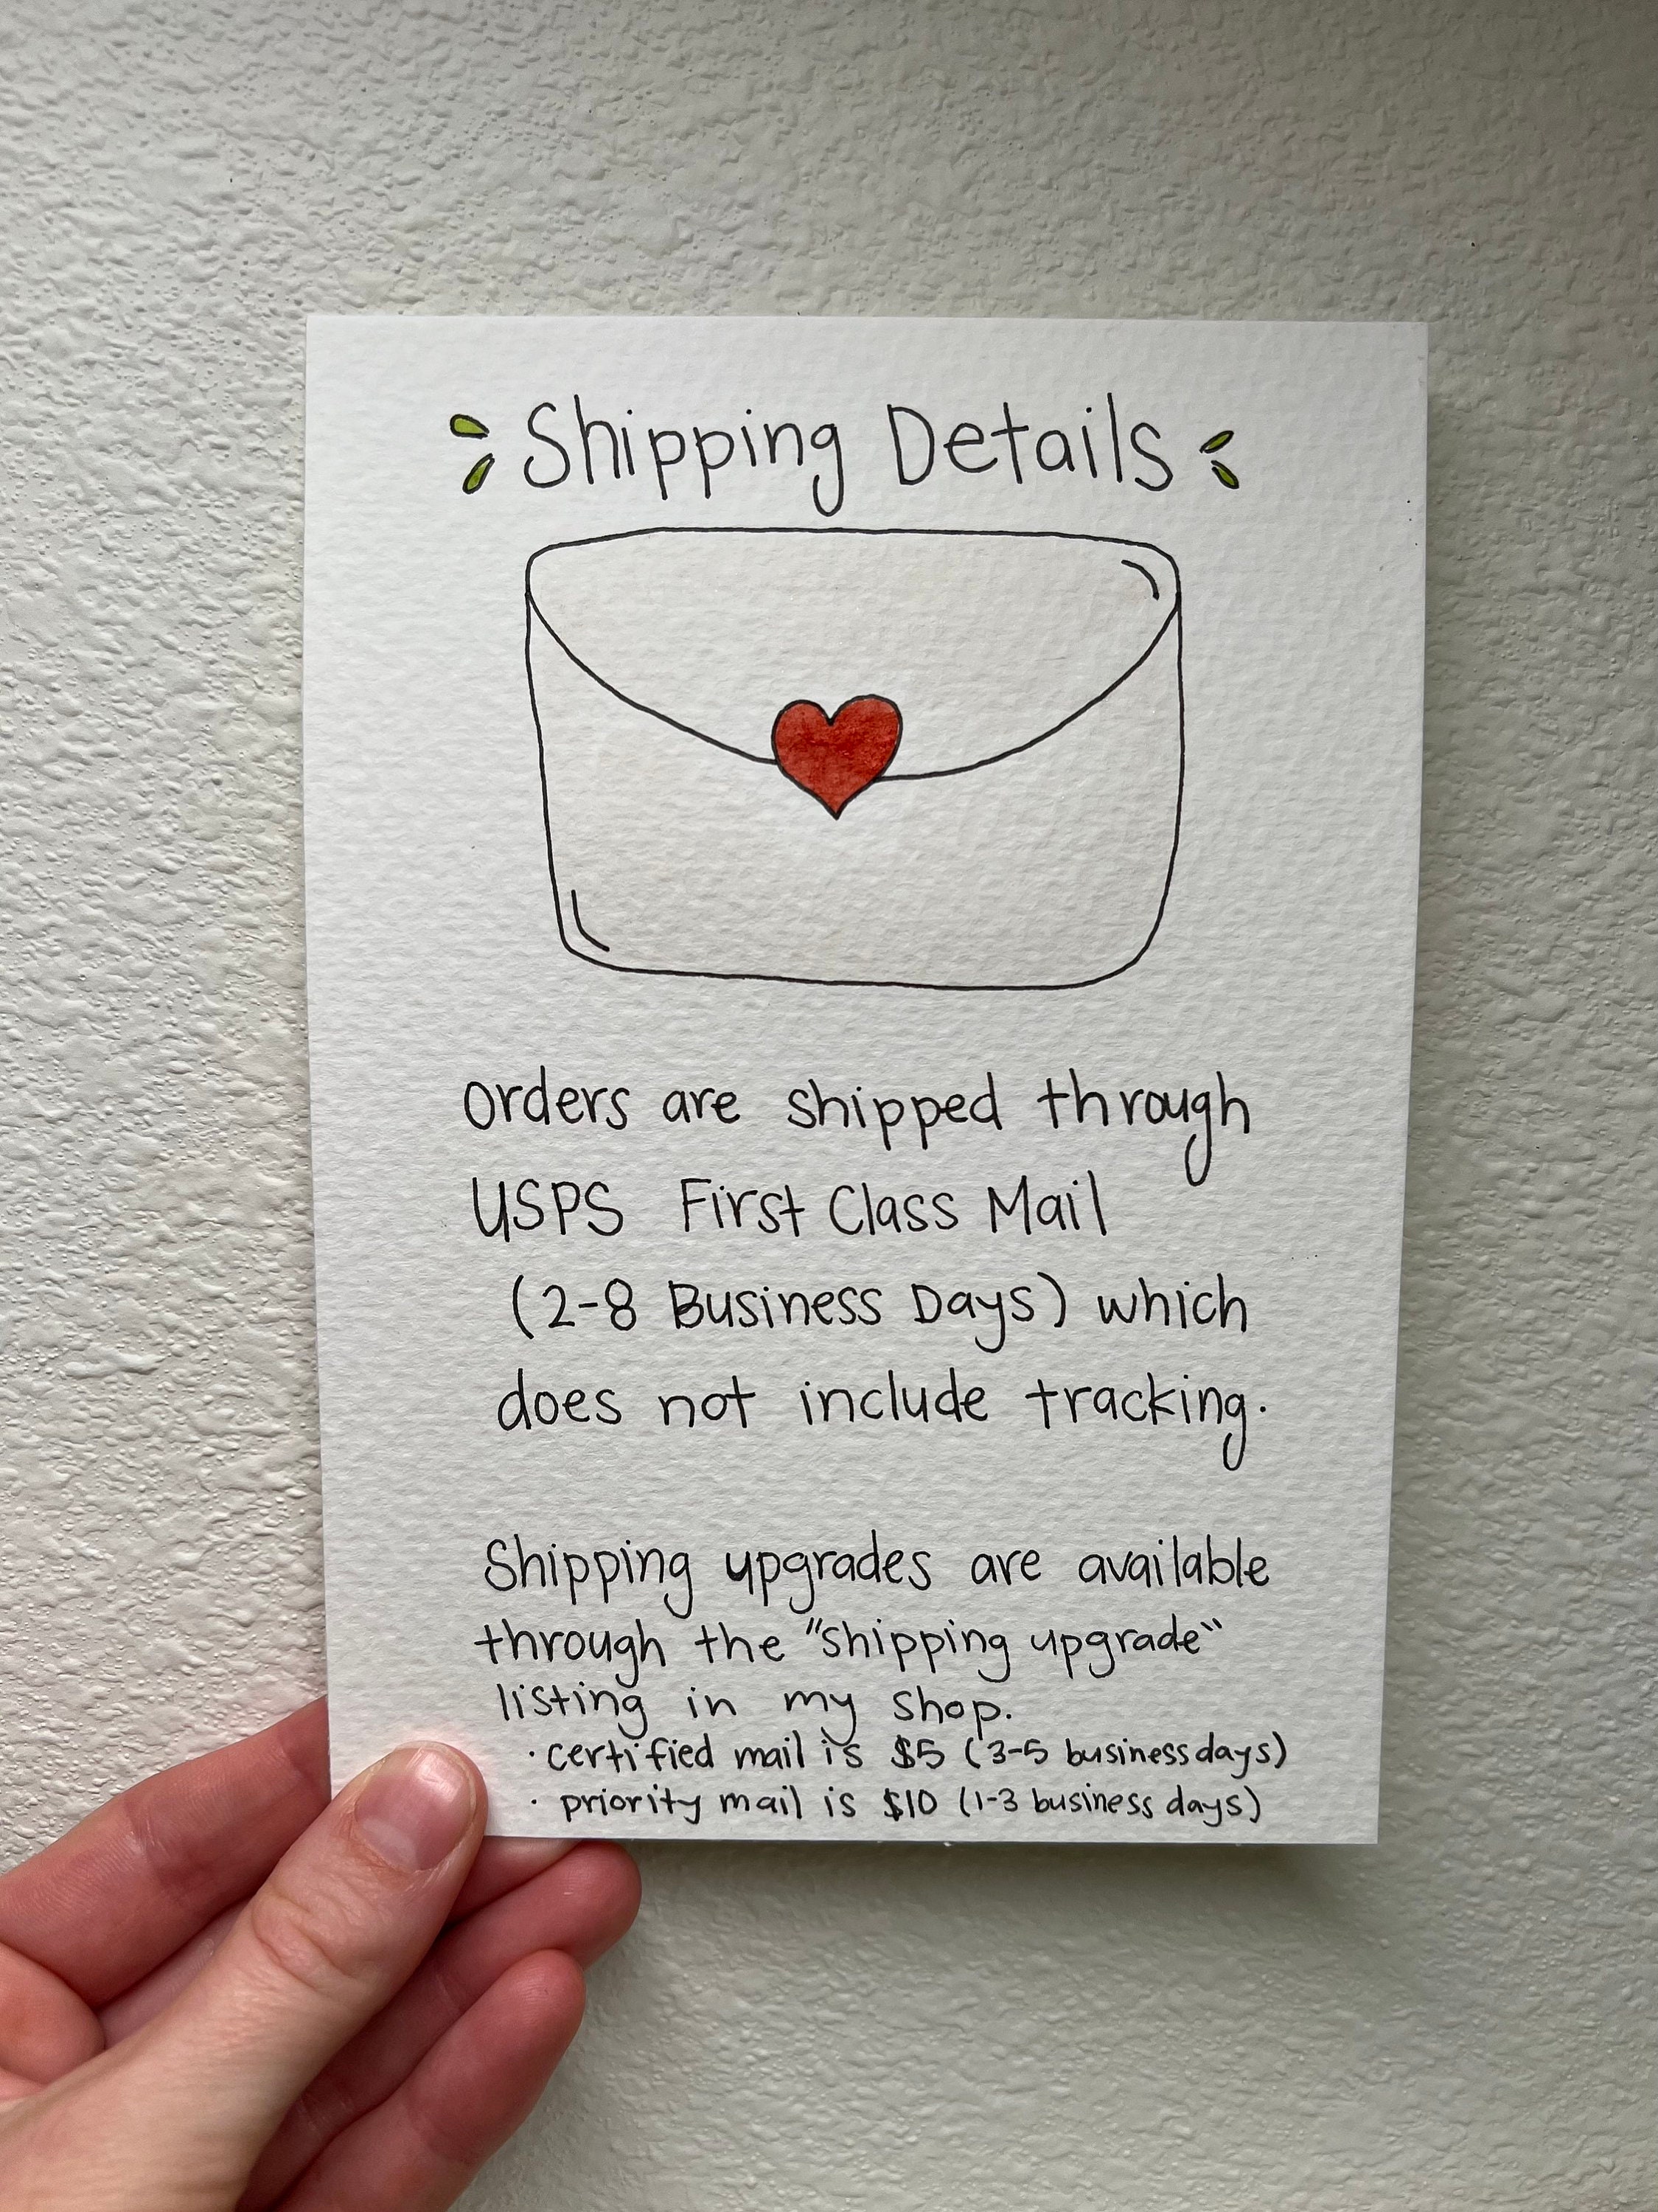 Shipping Details
orders are shipped through
USPS First Class Mail
(2-8 Business Days) which
does not include tracking.
Shipping upgrades are available
through the "shipping upgrade"
listing in my shop.
· certified mail is $5 (3-5 business days)
· priority mail is $10 (1-3 business days)